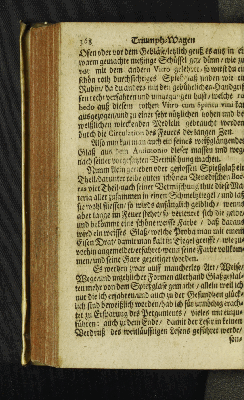 368 Triumph-Wagen
Ofen oder vor dem Gebläse/letzlich geuß es auß in ei
warm gemachte meßinge Schüssel gar dünn / wie zu
vor mit dem andern Vitro gelehret/ so wirstu ein
schön roth durchsichtiges Spießglaß finden wie ein
Rubin/ da du anders mit den gebührlichen Handgrif-
fen recht verfahren und umgangen hast/ welche
auß diesem rothen Vitro
außgezogen/und zu einer sehr nützlichen wohn und be-
weißlichen wirckenden Medicin gebraucht werden
durch die Circulation des Feuers der langen Zeit.
Also nun kan man auch ein feines weißglänzendes
Glaß auß dem Antimonio diese massen und wege
nach seiner vorgesetzten Vermischung machen.
Nimm klein geriebenen oder gestossen Spießglaß ein
Theil/darunter reibe guten schönen Venedischen Bo-
rax vier Theil/nach seiner Vermischung thue diese Ma-
teria aller zusammen in einen Schmelztiegel / und laß
wohl fliessen/ so wirds anfänglich gelblich / wenns
aber lange im Feuer stehet/so verleuret sich die gelbe/
und bekommt eine schöne weisse Farbe / daß darauß
wird ein weisses Glaß/ welche Proba man mit einem
Eisen Drat/ damit man kalt in Tiegel greiffe / wie
vorhin angemeldet/erfahret/wenn seine Farbe vollkom-
men/und seine Gare gezeitiget worden.
Es werden zwar auff mancherley Art/ Weise/
Wege und ungleicher Formen allerhand Glaß
ten mehr von dem Spießglaße gemacht / allein weil ich
nur die ich erfahren/und auch zu der Gesundheit glück-
lich sind beweißlich worden/hab ich für unnöhtig erach-
tet zu Ersparung des Pergaments / vieles mit einzu-
führen: auch zu dem Ende/ damit der Leser in keinen
Verdruß des weitläufftigen Lesens geführet werde/
son-